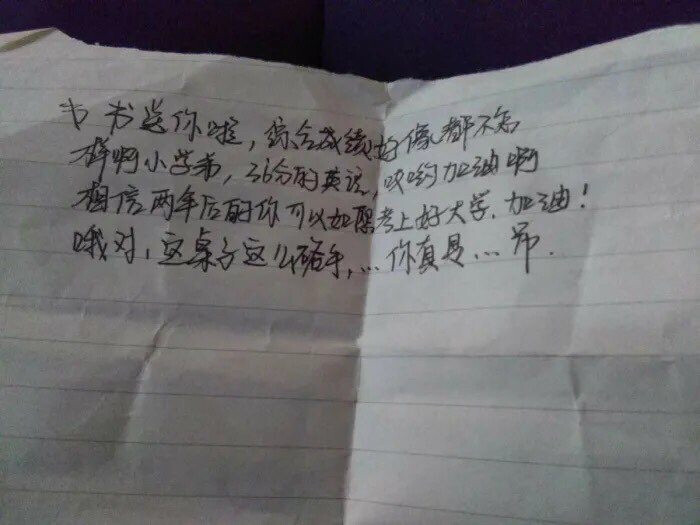 书送你啦，综合成绩好像都不怎
样啊小学弟，36分的英语，哎哟加油啊
相信两年后的你可以如愿考上好大学.加油！
哦对，这桌子这么硌手，…你真是…吊.